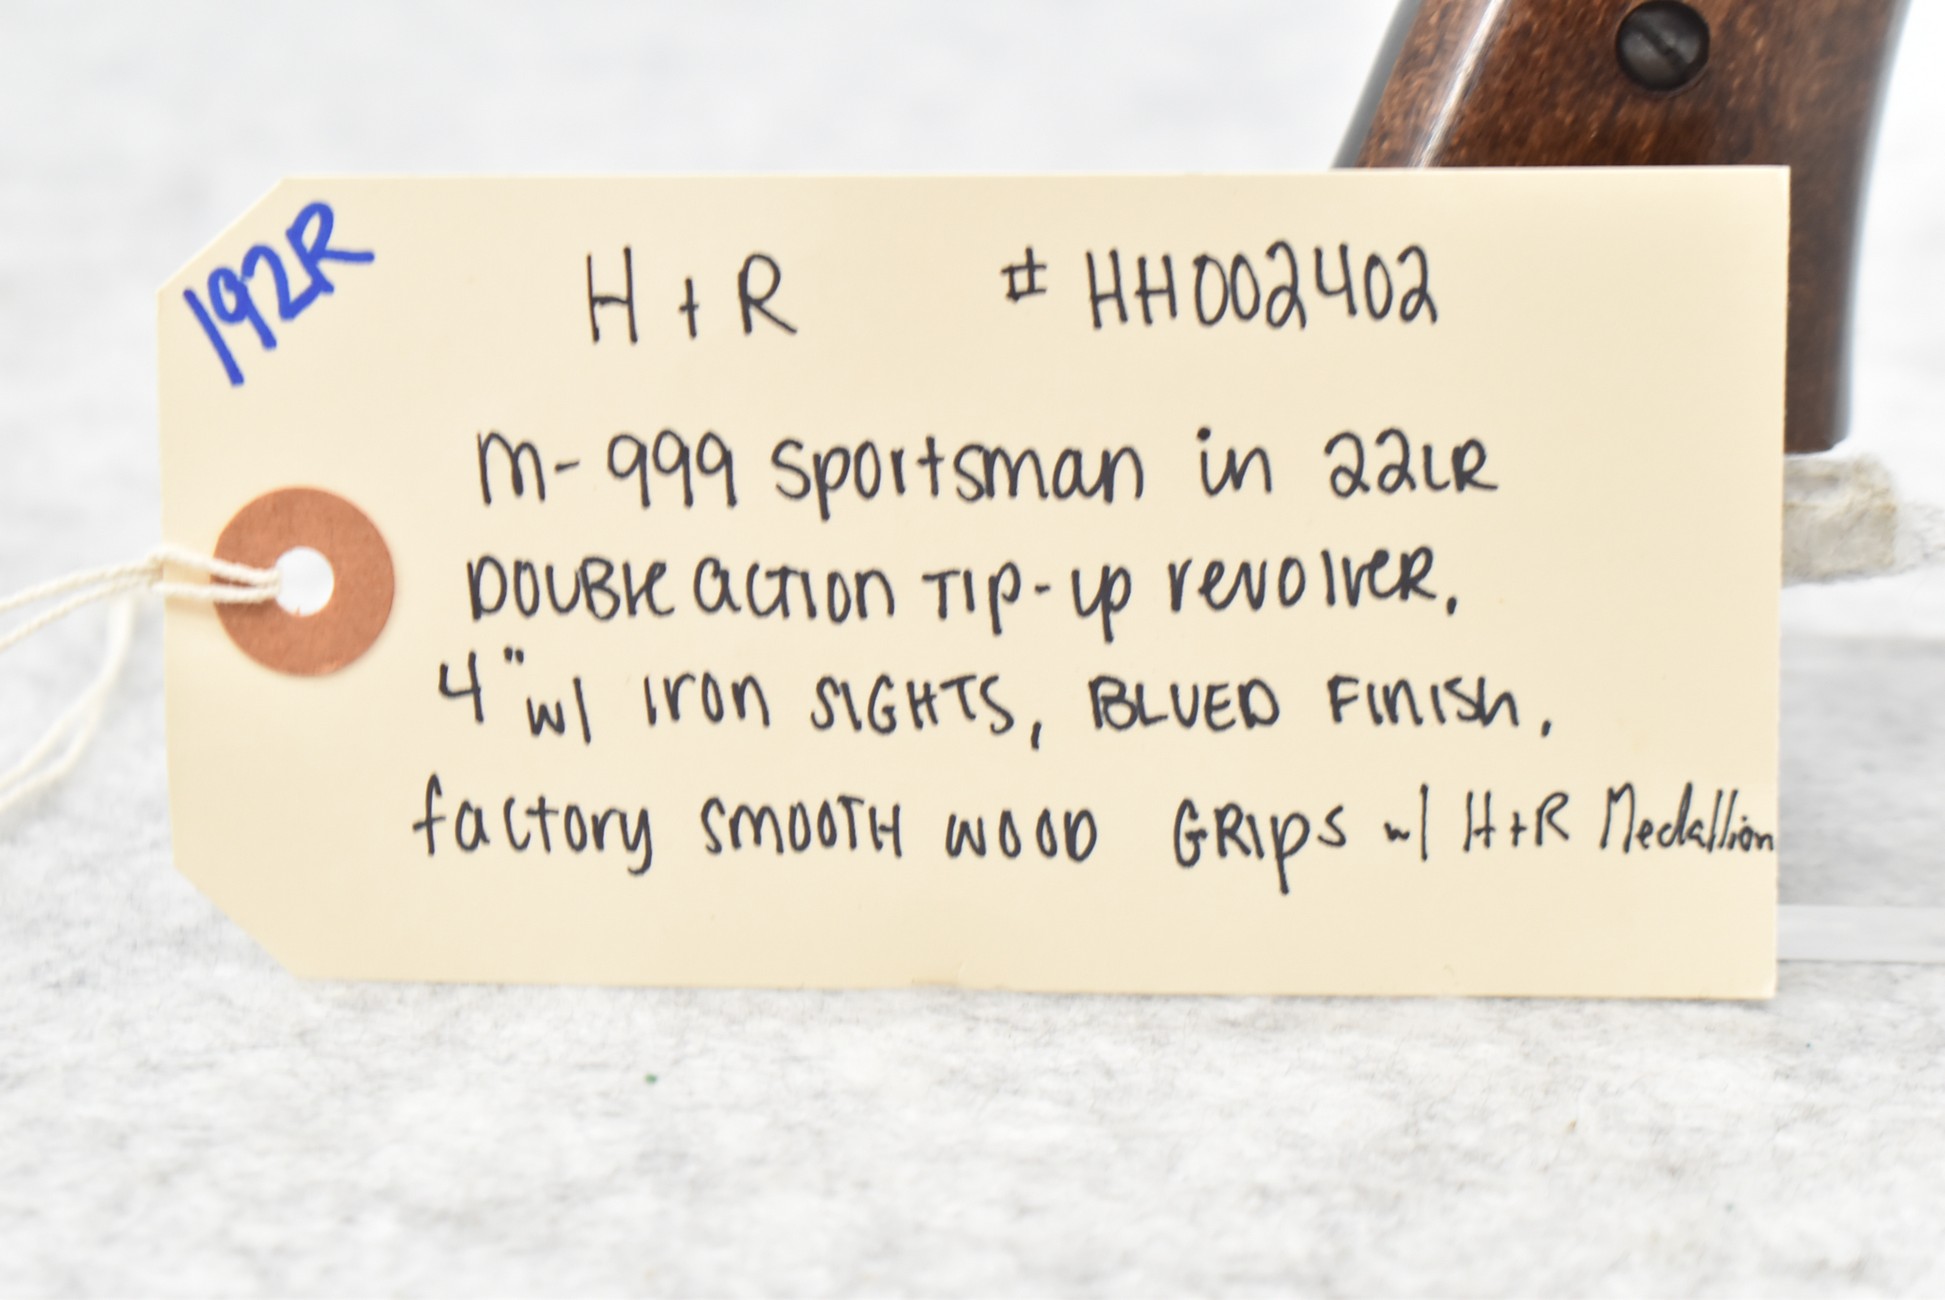 192R
H + R # HH002402
M-999 Sportsman in 22LR
DOUBle action Tip-up revolveR.
4" w/ Iron SIGHTS, BLUED FINISh.
factory SMOOTH WOOD GRIps w/ H+R Medallion